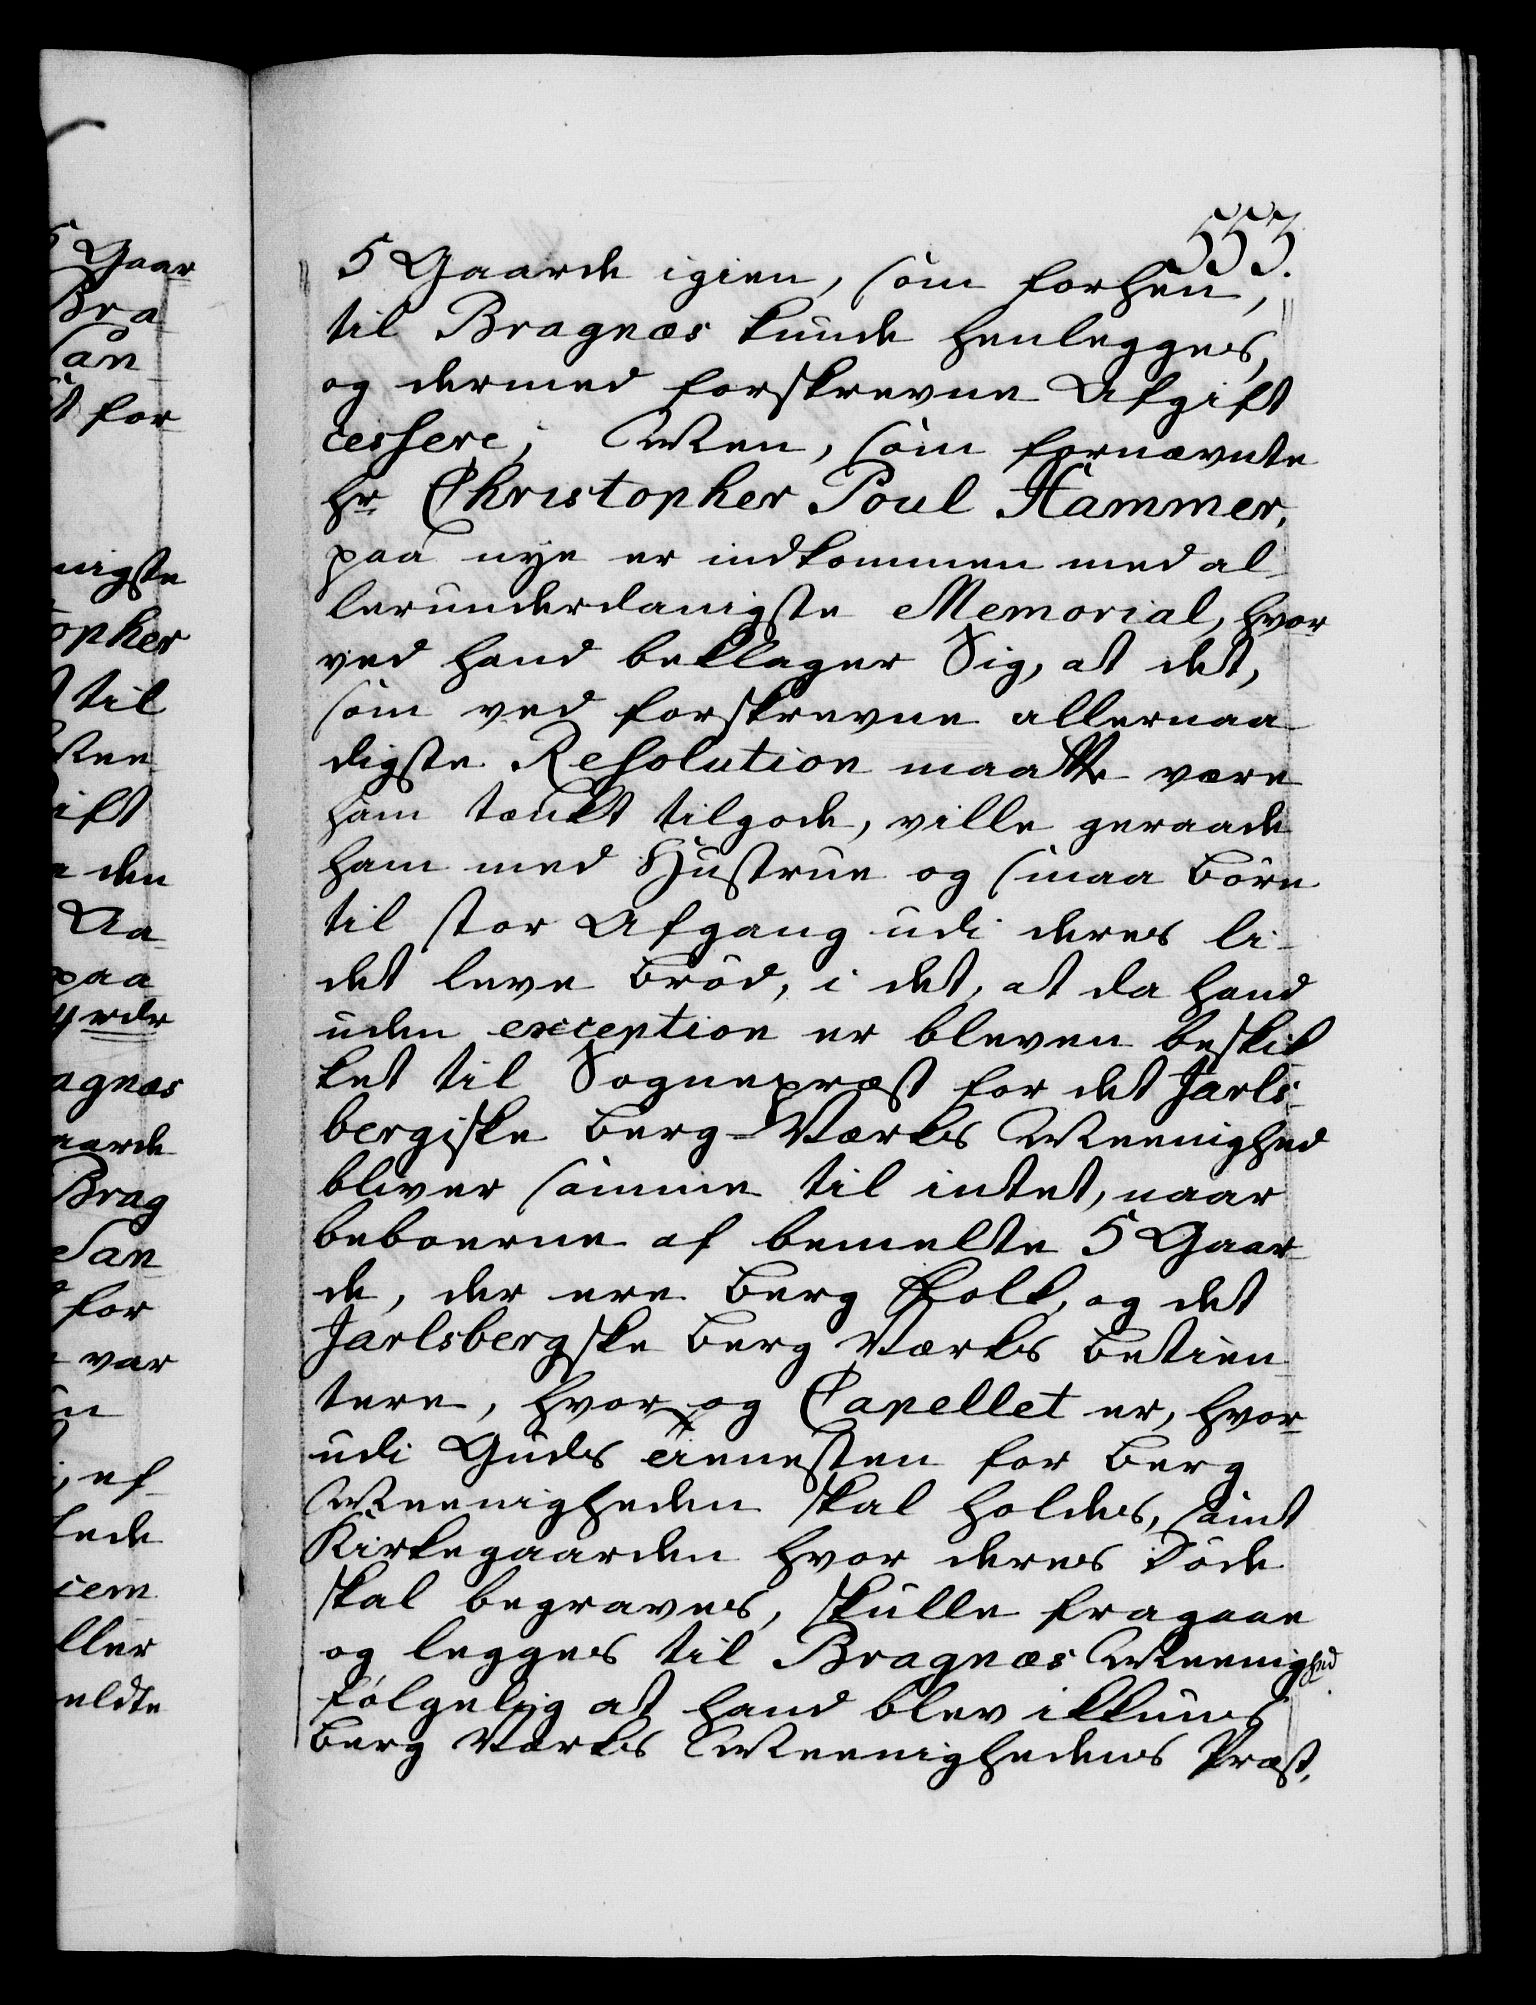 553.
5 Gaarde igien, som forhen,
til Bragnæs kunde henlegges,
og dermed forskrevne Afgift
cessere; Men, som fornævnte
Hr Christopher Poul Hammer,
paa nye er indkommen med al-
lerunderdanigste Memorial, hvor
ved hand beklager Sig, at det,
som ved forskrevne allernaa
digste Resolution maatte være
ham tænkt tilgode, ville geraade
ham med Hustrue og smaa Börn
til stor Afgang udi deres li-
det leve bröd, i det, at da hand
uden exception er bleven beskik
ket til Sognepræst for det Jarls-
bergiske Berg-Værks Meenighed
bliver samme til intet, naar
beboerne af bemelte 5 Gaar-
de, der ere Berg Folk, og det
Jarlsbergske Berg Værks Betien
tere, hvor og Capellet er, hvor-
udi Guds tienesten for Berg
Meenigheden skal holdes, samt
Kirkegaarden hvor deres Döde
skal begraves, skulle fragaae
og legges til Bragnæs Meenighed.
fölgelig at hand blev ikkuns
Berg Værks Meenighedens Præst,
5 Gaar
Bra
San
for
nigste
opher
til
Mee
ift
den
Aa-
paa
4 rdr
agnæs
aarde
Brag
San
for
var
n
ef
ede
icem
ller
eldte